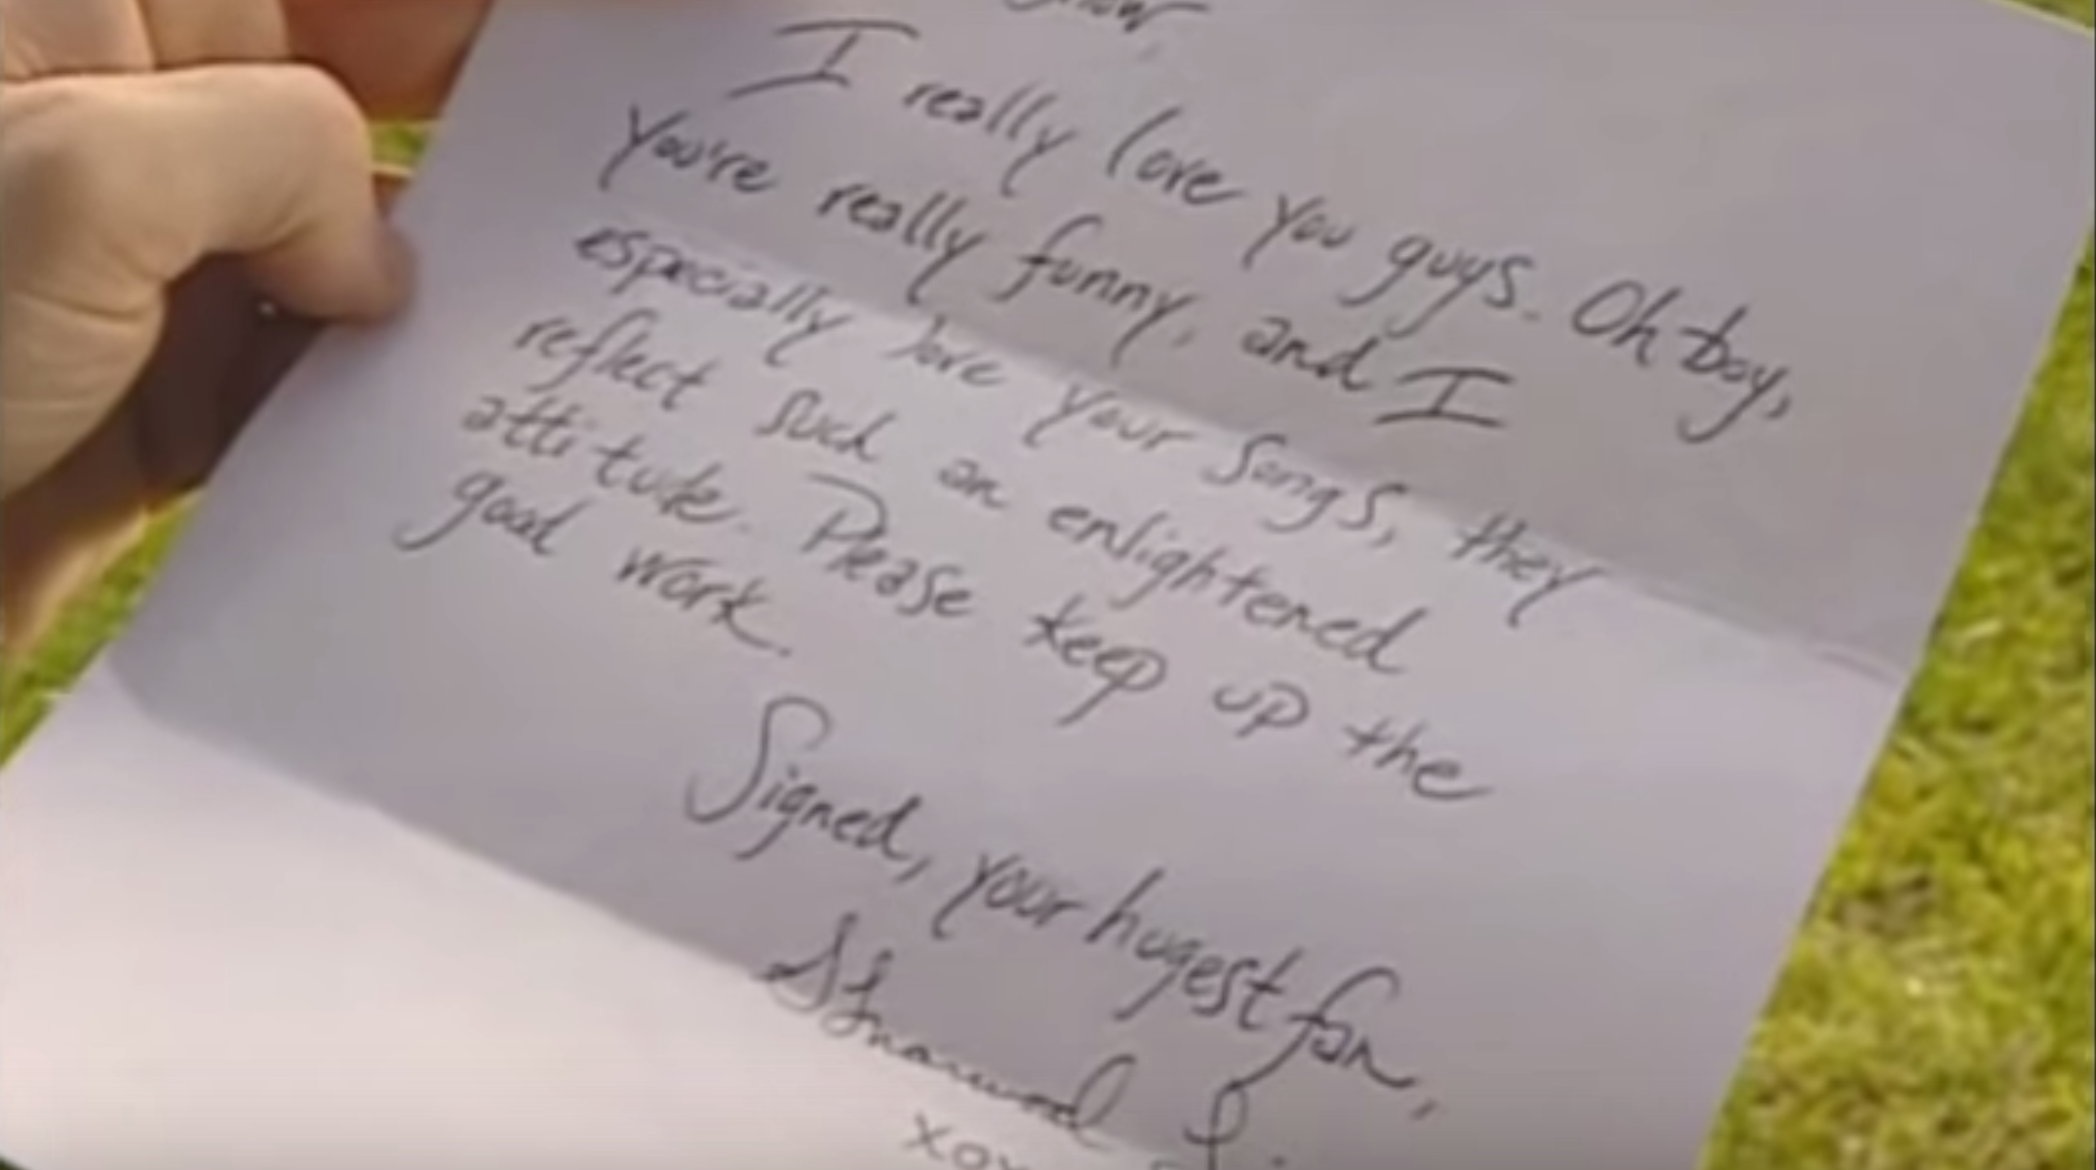 I really love you guys. Oh boy,
you're really funny, and I
especially love your songs, they
reflect such an enlightened
attitude. Please keep up the
good work.
Signed, your hugest fan,